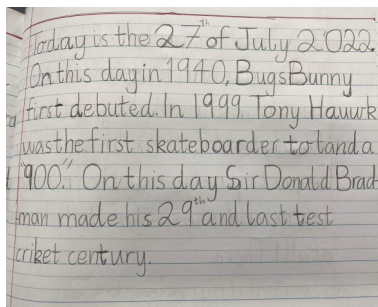 Today is the 27th of July 2022.
On this day in 1940, Bugs Bunny
first debuted. In 1999, Tony Hauwk
was the first skateboarder to land a
"900." On this day Sir Donald Brad-
man made his 29th and last test
criket century.